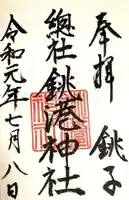 奉拝 銚子
總社 銚港神社
令和元年七月八日